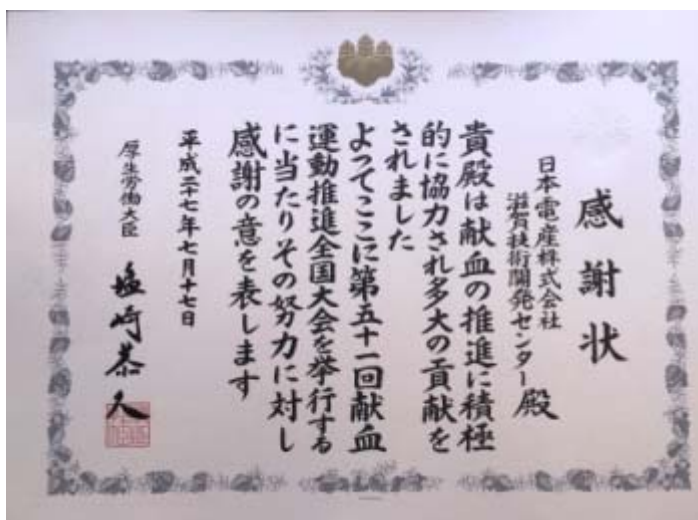 感謝状
日本電産株式会社
滋賀技術開発センター 殿
貴殿は献血の推進に積極
的に協力され多大の貢献を
されました
よってここに第五十一回献血
運動推進全国大会を挙行する
に当たりその努力に対し
感謝の意を表します
平成二十七年七月十七日
厚生労働大臣 塩崎恭久